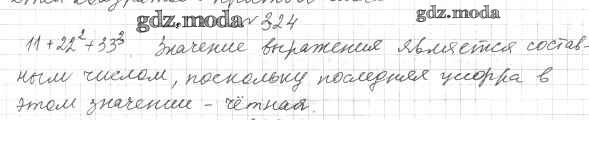 gdz.moda № 324 gdz.moda
11 + 22² + 33³. Значение выражения является состав-
ным числом, поскольку последняя цифра в
этом значении - чётная.